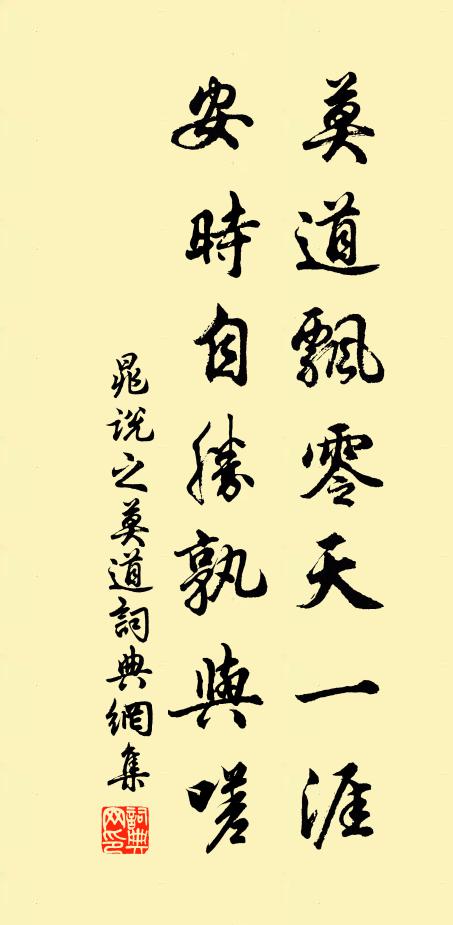 莫道飄零天一涯
安時自勝孰與嗟
晁說之莫道詞典網集
詞典網印